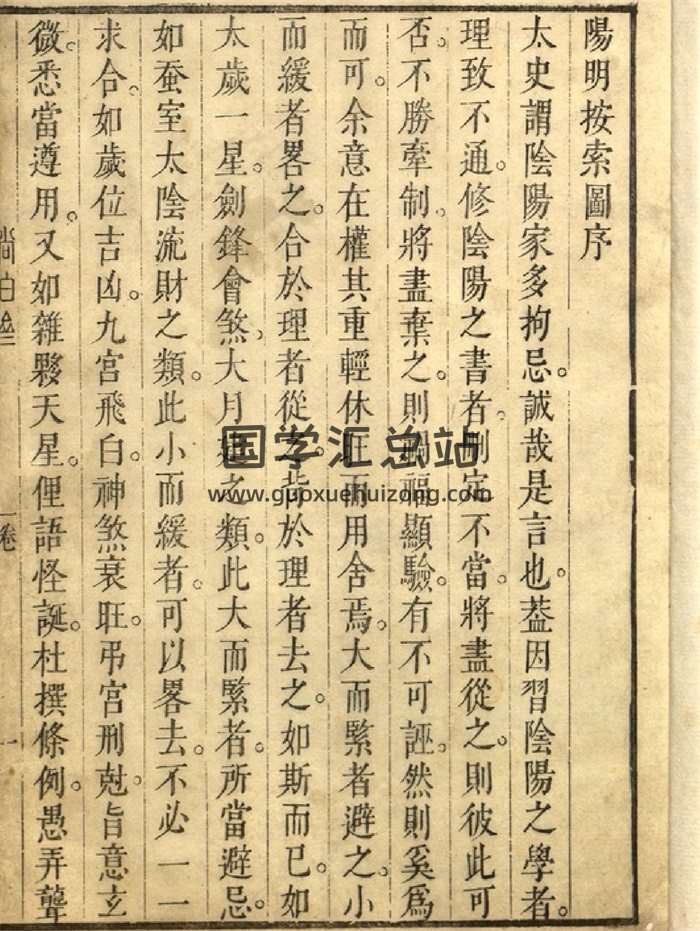 陽明按索圖序
太史謂陰陽家多拘忌。誠哉是言也。葢因習陰陽之學者。
理致不通。修陰陽之書者。刪定不當。將盡從之。則彼此可
否。不勝牽制。將盡棄之。則禍福顯驗。有不可誣。然則奚爲
而可。余意在權其重輕休旺而用舍焉。大而緊者避之。小
而緩者畧之。合於理者從之。背於理者去之。如斯而已。如
太歲一星。劍鋒會煞。大月建之類。此大而緊者。所當避忌。
如蚕室太陰流財之類。此小而緩者。可以畧去。不必一一
求合。如歲位吉凶。九宮飛白。神煞衰旺。弔宮刑尅。旨意玄
微。悉當遵用。又如雜夥天星。俚語怪誕。杜撰條例。愚弄聾
卷
一
国学汇总站
www.guoxuehuizong.com